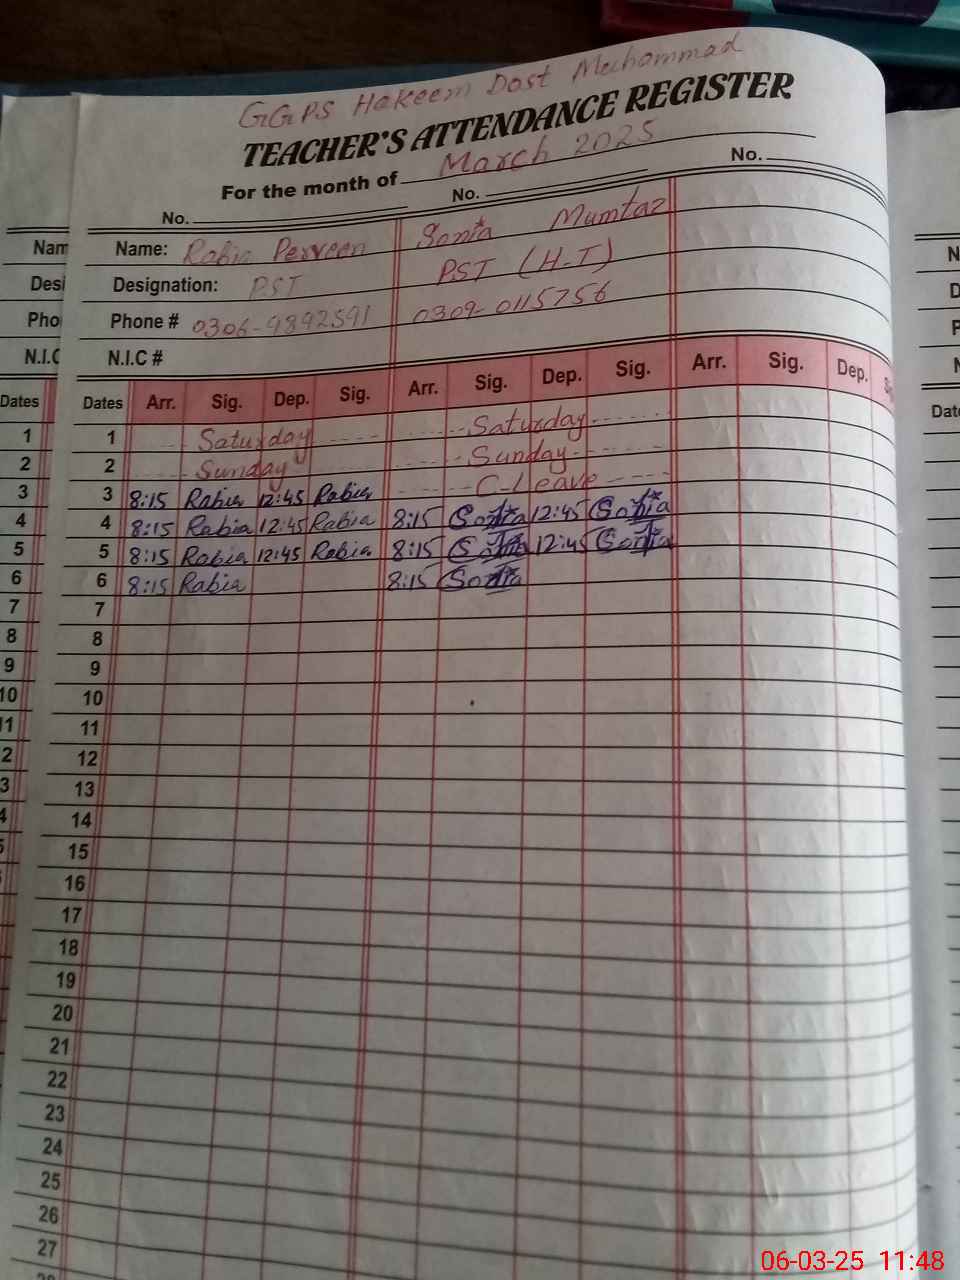 GGPS Hakeem Dost Muhammad
TEACHER'S ATTENDANCE REGISTER
For the month of March 2025
No. No. No.
Name: Rabia Perveen Sonia Mumtaz
Designation: PST PST (H-T)
Phone # 0306-9892591 0309-0115756
N.I.C #
Dates Arr. Sig. Dep. Sig. Arr. Sig. Dep. Sig. Arr. Sig. Dep.
1 Saturday Saturday
2 Sunday Sunday
3 8:15 Rabia 12:45 Rabia C-Leave
4 8:15 Rabia 12:45 Rabia 8:15 Sonia 12:45 Sonia
5 8:15 Rabia 12:45 Rabia 8:15 Sonia 12:45 Sonia
6 8:15 Rabia 8:15 Sonia
7
8
9
10
11
12
13
14
15
16
17
18
19
20
21
22
23
24
25
26
27
Nam
Desi
Pho
N.I.C
Dates
1
2
3
4
5
6
7
8
9
10
11
2
3
4
N
D
P
N
Date
06-03-25 11:48